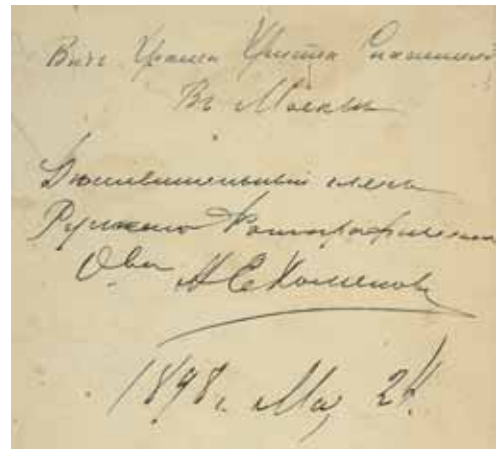 Видъ Храма Христа Спасителя
Въ Москвѣ
Дѣйствительный членъ
Русскаго Фотографическаго
О-ва
1898 г. Мая 24.